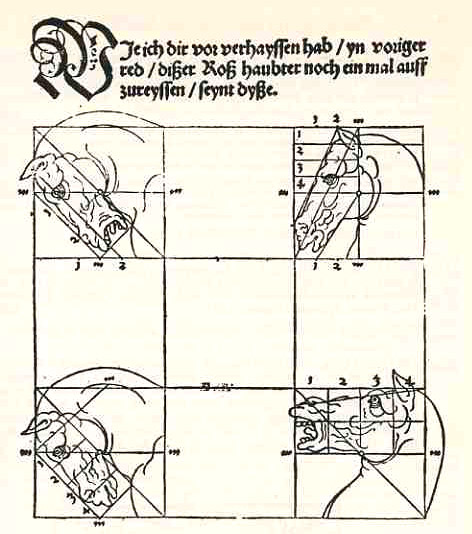 Wie ich dir vor verhayssen hab / yn voriger
red / dißer Roß haubter noch ein mal auff
zureyssen / seynt dyße.
1 2 m
1
2
3
4
m m m m
1
2
1 m 2 1 2 m
1 2 3 4
m
m m m m
1
2
3
4
m m